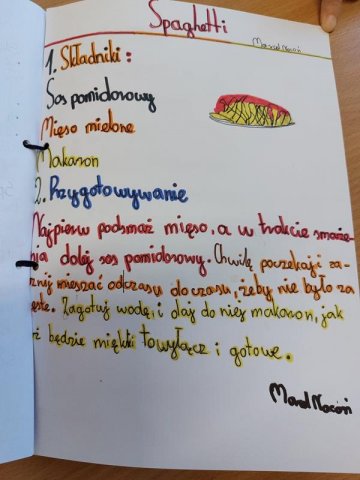 Spaghetti
1. Składniki:
Sos pomidorowy
Mięso mielone
Makaron
2. Przygotowywanie
Najpierw podsmaż mięso, a w trakcie smaże-
nia dolej sos pomidorowy. Chwilę poczekaj i za-
cznij mieszać od czasu do czasu, żeby nie było za
gęste. Zagotuj wodę, i daj do niej makaron, jak
już będzie miękki to wyłącz i gotowe.